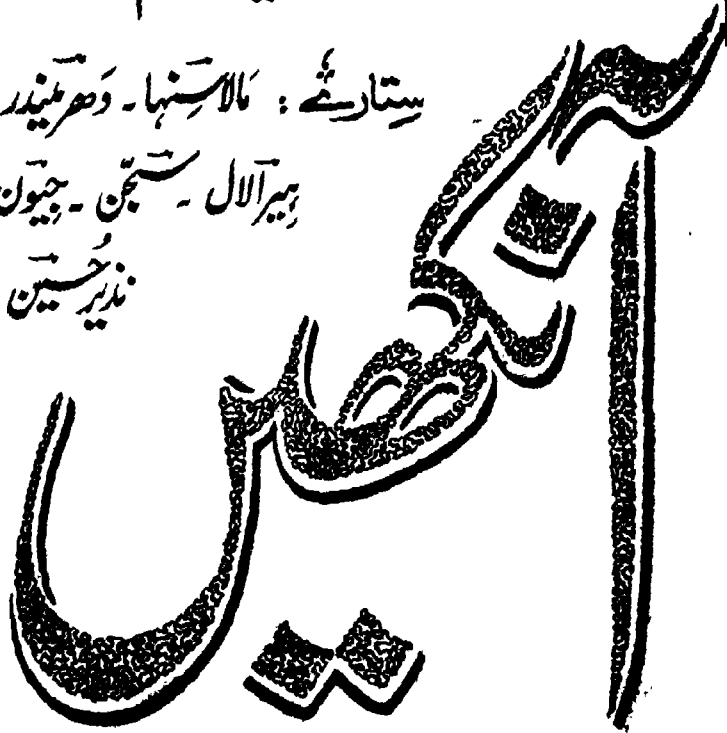 ستارے : مالا سنہا ۔ دھرمیندر
ہیرالال ۔ سجّن ۔ جیون
نذیر حُسین
آنکھیں